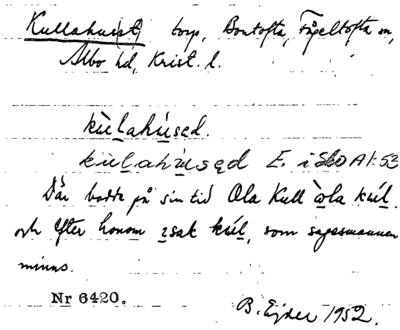 Kullahus(et) torp, Bontofta, Fågeltofta sn,
Albo hd, Krist. l.
kùlahúsəd.
kùlahúsəd E. i SkO A1:53
Där bodde på sin tid Ola Kull òla kúl.
och efter honom isak kúl, som sagesmannen
minns.
Nr 6420.
B. Ejder 1952.